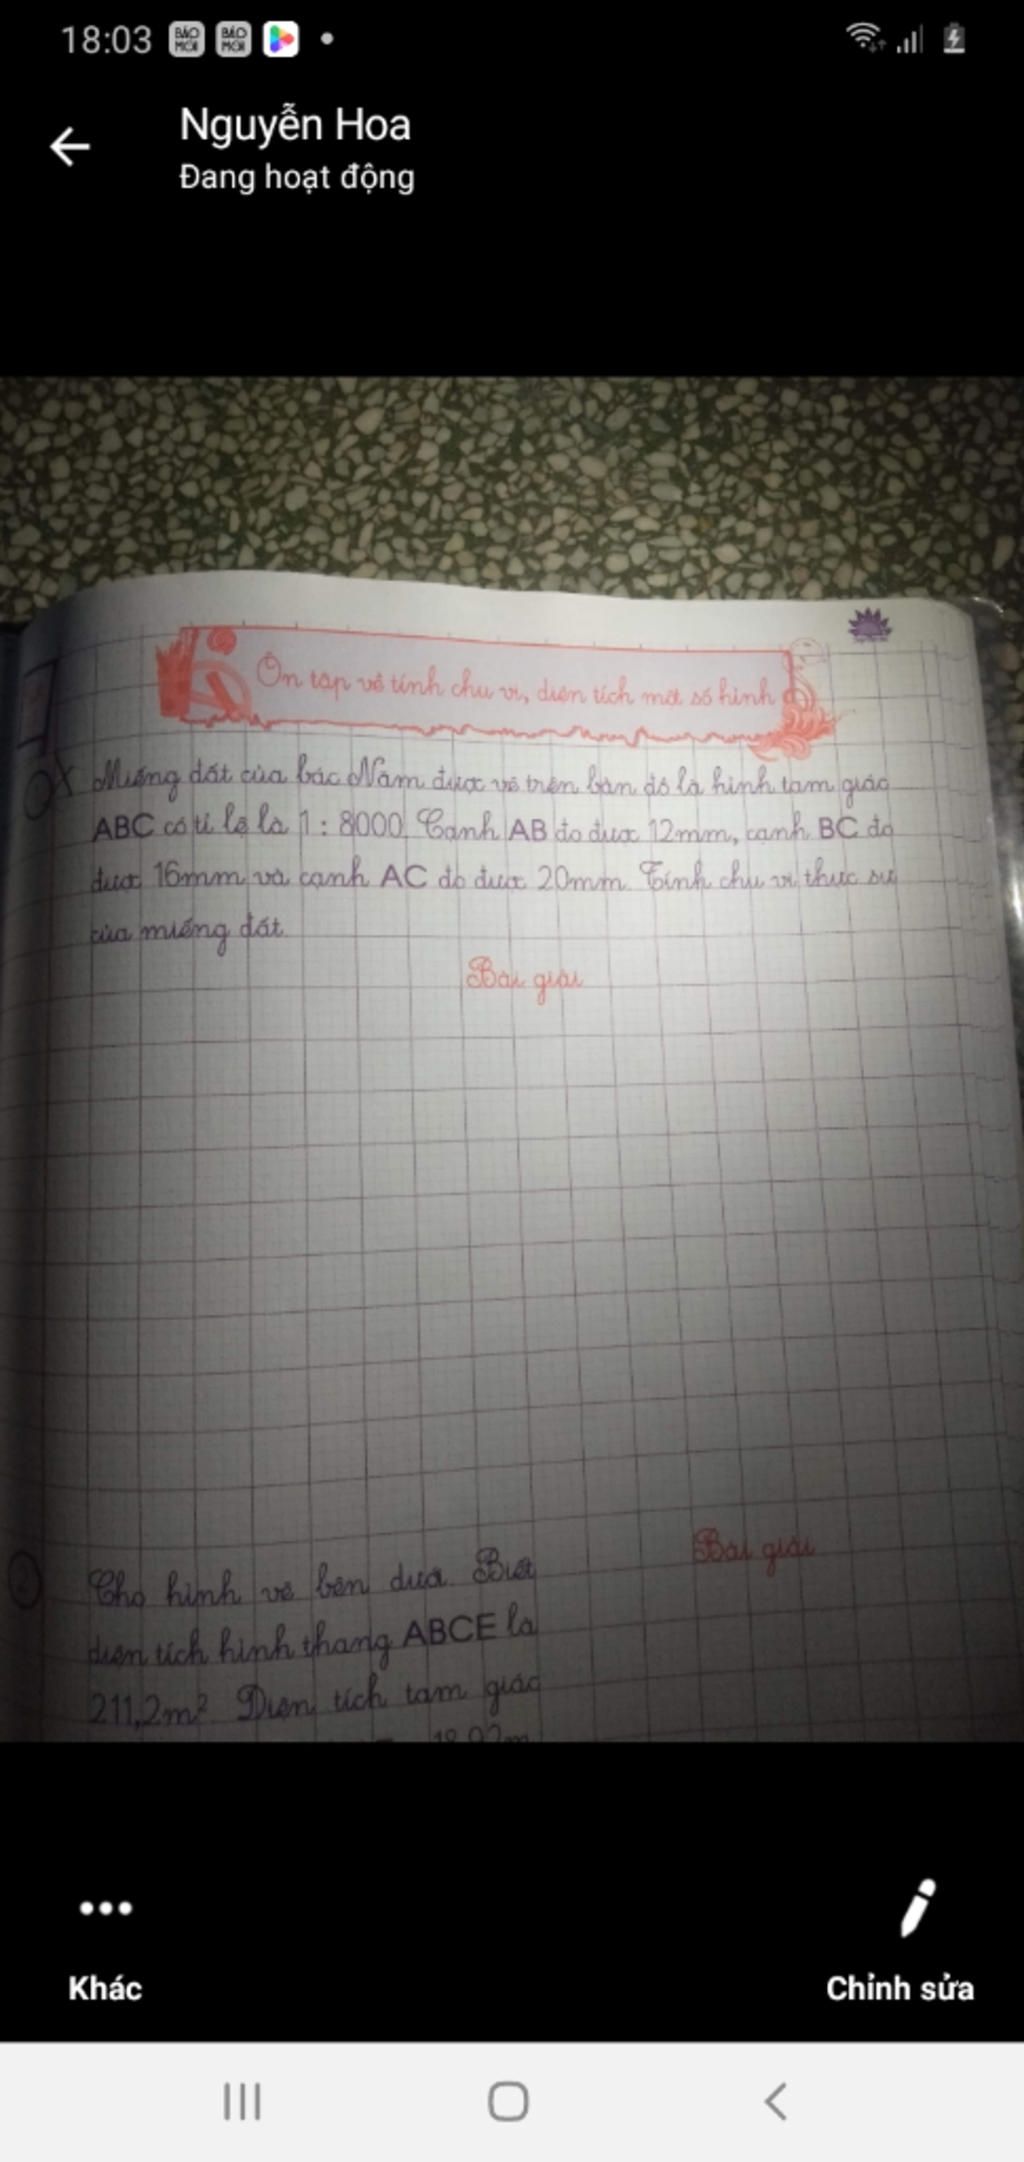 18:03 BÁO MỚI BÁO MỚI
Nguyễn Hoa
Đang hoạt động
Ôn tập về tính chu vi, diện tích một số hình
Miếng đất của bác Năm được vẽ trên bản đồ là hình tam giác
ABC có tỉ lệ là 1 : 8000. Cạnh AB đo được 12mm, cạnh BC đo
được 16mm và cạnh AC đo được 20mm. Tính chu vi thực sự
của miếng đất.
Bài giải
2 Cho hình vẽ bên dưới. Biết
diện tích hình thang ABCE là
211,2m² Diện tích tam giác
Bài giải
Khác
Chỉnh sửa